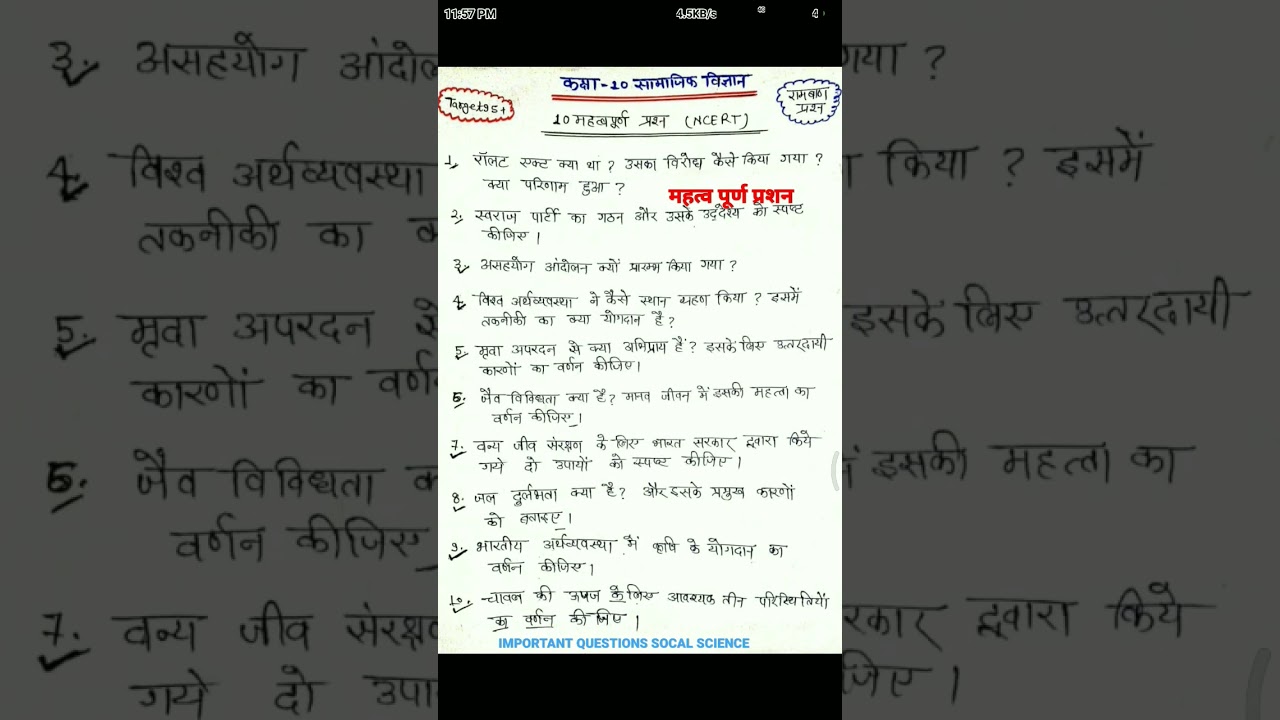 11:57 PM 4.5KB/s 4
कक्षा-10 सामाजिक विज्ञान
Target95+
रामबाण
प्रश्न
10 महत्वपूर्ण प्रश्न (NCERT)
1. रॉलट एक्ट क्या था ? उसका विरोध कैसे किया गया ?
क्या परिणाम हुआ ?
महत्व पूर्ण प्रशन
2. स्वराज पार्टी का गठन और उसके उद्देश्य को स्पष्ट
कीजिए ।
3. असहयोग आंदोलन क्यों प्रारम्भ किया गया ?
4. विश्व अर्थव्यवस्था ने कैसे स्थान ग्रहण किया ? इसमें
तकनीकी का क्या योगदान है ?
5. मृवा अपरदन से क्या अभिप्राय हैं ? इसके लिए उत्तरदायी
कारणों का वर्णन कीजिए।
6. जैव विविधता क्या है ? मानव जीवन में इसकी महत्ता का
वर्णन कीजिए।
7. वन्य जीव संरक्षण के लिए भारत सरकार द्वारा किये
गये दो उपायों को स्पष्ट कीजिए।
8. जल दुर्लभता क्या है ? और इसके प्रमुख कारणों
को बताइए।
9. भारतीय अर्थव्यवस्था में कृषि के योगदान का
वर्णन कीजिए।
10. चावल की उपज के लिए आवश्यक तीन परिस्थितियों
का वर्णन कीजिए ।
IMPORTANT QUESTIONS SOCAL SCIENCE
3. असहयोग आंदो
गया ?
4. विश्व अर्थव्यवस्था
किया ? इसमें
तकनीकी का
5. मृवा अपरदन से
इसके लिए उत्तरदायी
कारणों का वर्णन
6. जैव विविधता
इसकी महत्ता का
वर्णन कीजिए
7. वन्य जीव
द्वारा किये
गये दो उपायों